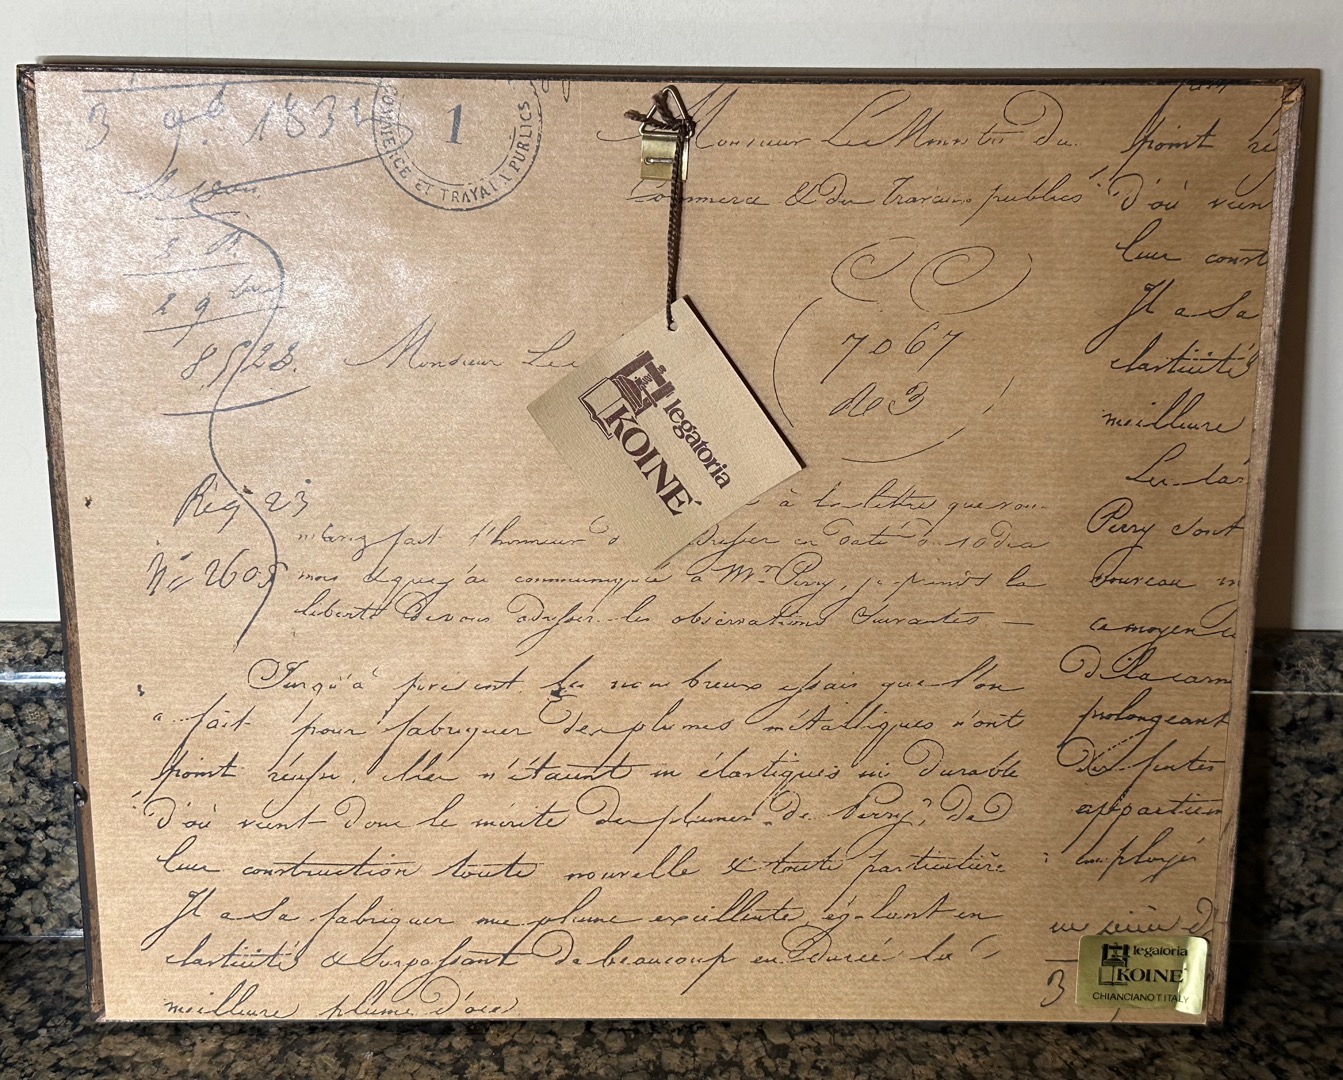 3 9.d 1832
COMMERCE ET TRAVAUX PUBLICS
1
Monsieur Le Ministre du
Commerce & du Travaux publics
7067
No 3
8523.
Monsieur Le
legatoria
KOINÈ
Reg 23
à la lettre que vous
m'avez fait l'honneur d en date du 10 de a
Nº 2605
mois & que j'ai communiquée à Mr. Perry, je prends la
liberté de vous adresser les observations suivantes —
Jusqu'à présent les nombreux essais que l'on
a fait pour fabriquer des plumes métalliques n'ont
point réussi. Elles n'étaient ni élastiques ni durable
d'où vient donc le mérite des plumes de Perry, de
leur construction toute nouvelle & toute particulière
Il a Su fabriquer une plume excellente, égalant en
élasticité & Surpassant de beaucoup en Durée la
meilleure plume d'oie
point ré
d'où vien
leur const
Il a Su
élasticité
meilleure
Perry Sont
nouveau
ce moyen
prolongeant
des fentes
appartien
employé
3
legatoria
KOINÈ
CHIANCIANO T ITALY